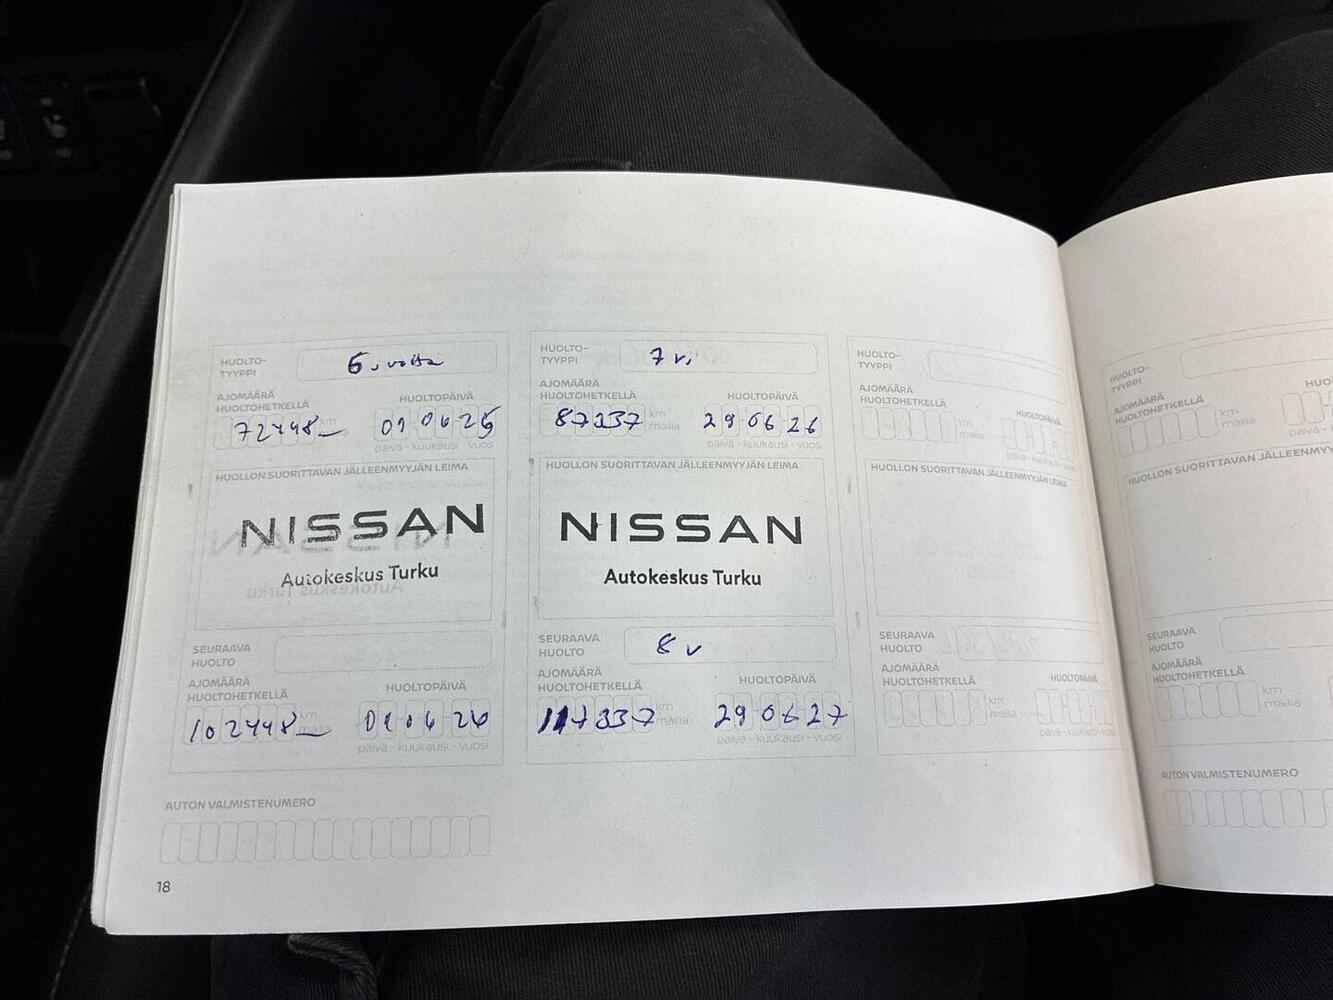 HUOLTO-
TYYPPI
6. vuotis
AJOMÄÄRÄ
HUOLTOHETKELLÄ
72448
km
HUOLTOPÄIVÄ
01 06 25
päivä - kuukausi - vuosi
HUOLLON SUORITTAVAN JÄLLEENMYYJÄN LEIMA
NISSAN
Autokeskus Turku
SEURAAVA
HUOLTO
AJOMÄÄRÄ
HUOLTOHETKELLÄ
102448
km
mailia
HUOLTOPÄIVÄ
01 06 26
päivä - kuukausi - vuosi
HUOLTO-
TYYPPI
7 v.
AJOMÄÄRÄ
HUOLTOHETKELLÄ
87337
km
mailia
HUOLTOPÄIVÄ
29 06 26
päivä - kuukausi - vuosi
HUOLLON SUORITTAVAN JÄLLEENMYYJÄN LEIMA
NISSAN
Autokeskus Turku
SEURAAVA
HUOLTO
8 v
AJOMÄÄRÄ
HUOLTOHETKELLÄ
117337
km
mailia
HUOLTOPÄIVÄ
29 06 27
päivä - kuukausi - vuosi
HUOLTO-
TYYPPI
AJOMÄÄRÄ
HUOLTOHETKELLÄ
km
mailia
HUOLTOPÄIVÄ
päivä - kuukausi - vuosi
HUOLLON SUORITTAVAN JÄLLEENMYYJÄN LEIMA
SEURAAVA
HUOLTO
AJOMÄÄRÄ
HUOLTOHETKELLÄ
km
mailia
HUOLTOPÄIVÄ
päivä - kuukausi - vuosi
AUTON VALMISTENUMERO
18
HUOLTO-
TYYPPI
AJOMÄÄRÄ
HUOLTOHETKELLÄ
km
mailia
HUOLLON SUORITTAVAN JÄLLEENMYY
SEURAAVA
HUOLTO
AJOMÄÄRÄ
HUOLTOHETKELLÄ
km
mailia
AUTON VALMISTENUMERO